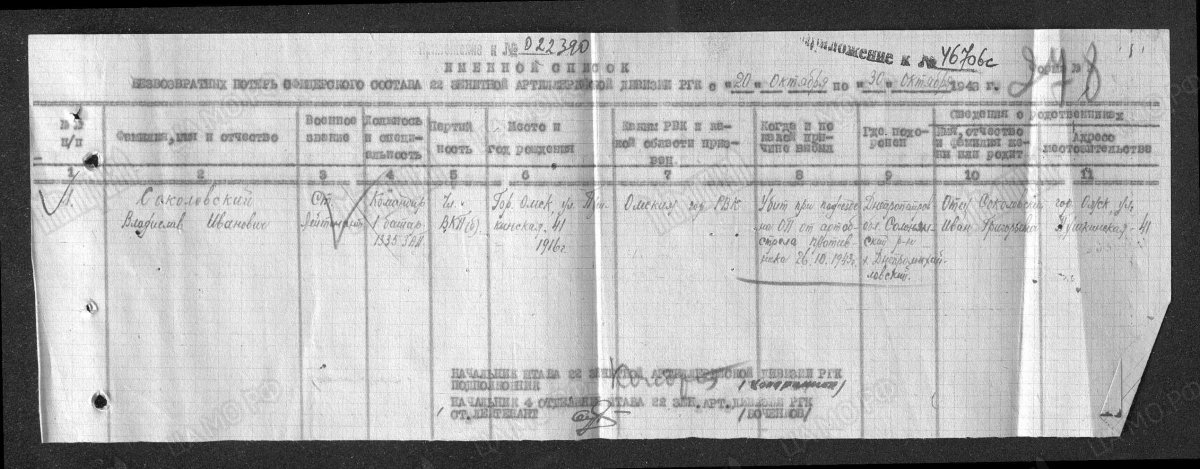 Приложение к № 022390
Приложение к № 46706с
ИМЕННОЙ СПИСОК
БЕЗВОЗВРАТНЫХ ПОТЕРЬ ОФИЦЕРСКОГО СОСТАВА 22 ЗЕНИТНОЙ АРТИЛЛЕРИЙСКОЙ ДИВИЗИИ РГК с "20" октября по "30" октября 1943 г.
№№ п/п
Фамилия, имя и отчество
Военное звание
Должность и специальность
Партийность
Место и год рождения
Каким РВК и какой области призван
Когда и по какой причине выбыл
Где похоронен
Сведения о родственниках
Имя, отчество и фамилия жены или родит
Адрес местожительства
1 2 3 4 5 6 7 8 9 10 11
1.
Соколовский
Владислав Иванович
Ст.
лейтенант
Командир
1 батар.
1335
Чл.
ВКП(б).
Гор. Омск ул. Пушкинская, 41
1916г
Омским гор. РВК
Убит при
ОП от
26.10.1943г.
обл.
р-н
Отец Соколовский
Иван Григорьевич
гор. Омск, ул.
Пушкинская - 41
НАЧАЛЬНИК ШТАБА 22 ЗЕНИТНОЙ АРТИЛЛЕРИЙСКОЙ ДИВИЗИИ РГК
ПОДПОЛКОВНИК
НАЧАЛЬНИК 4 ОТДЕЛЕНИЯ ШТАБА 22 ЗЕН. АРТ. ДИВИЗИИ РГК
СТ. ЛЕЙТЕНАНТ (БОЧЕНКОВ)
ЦАМО РФ